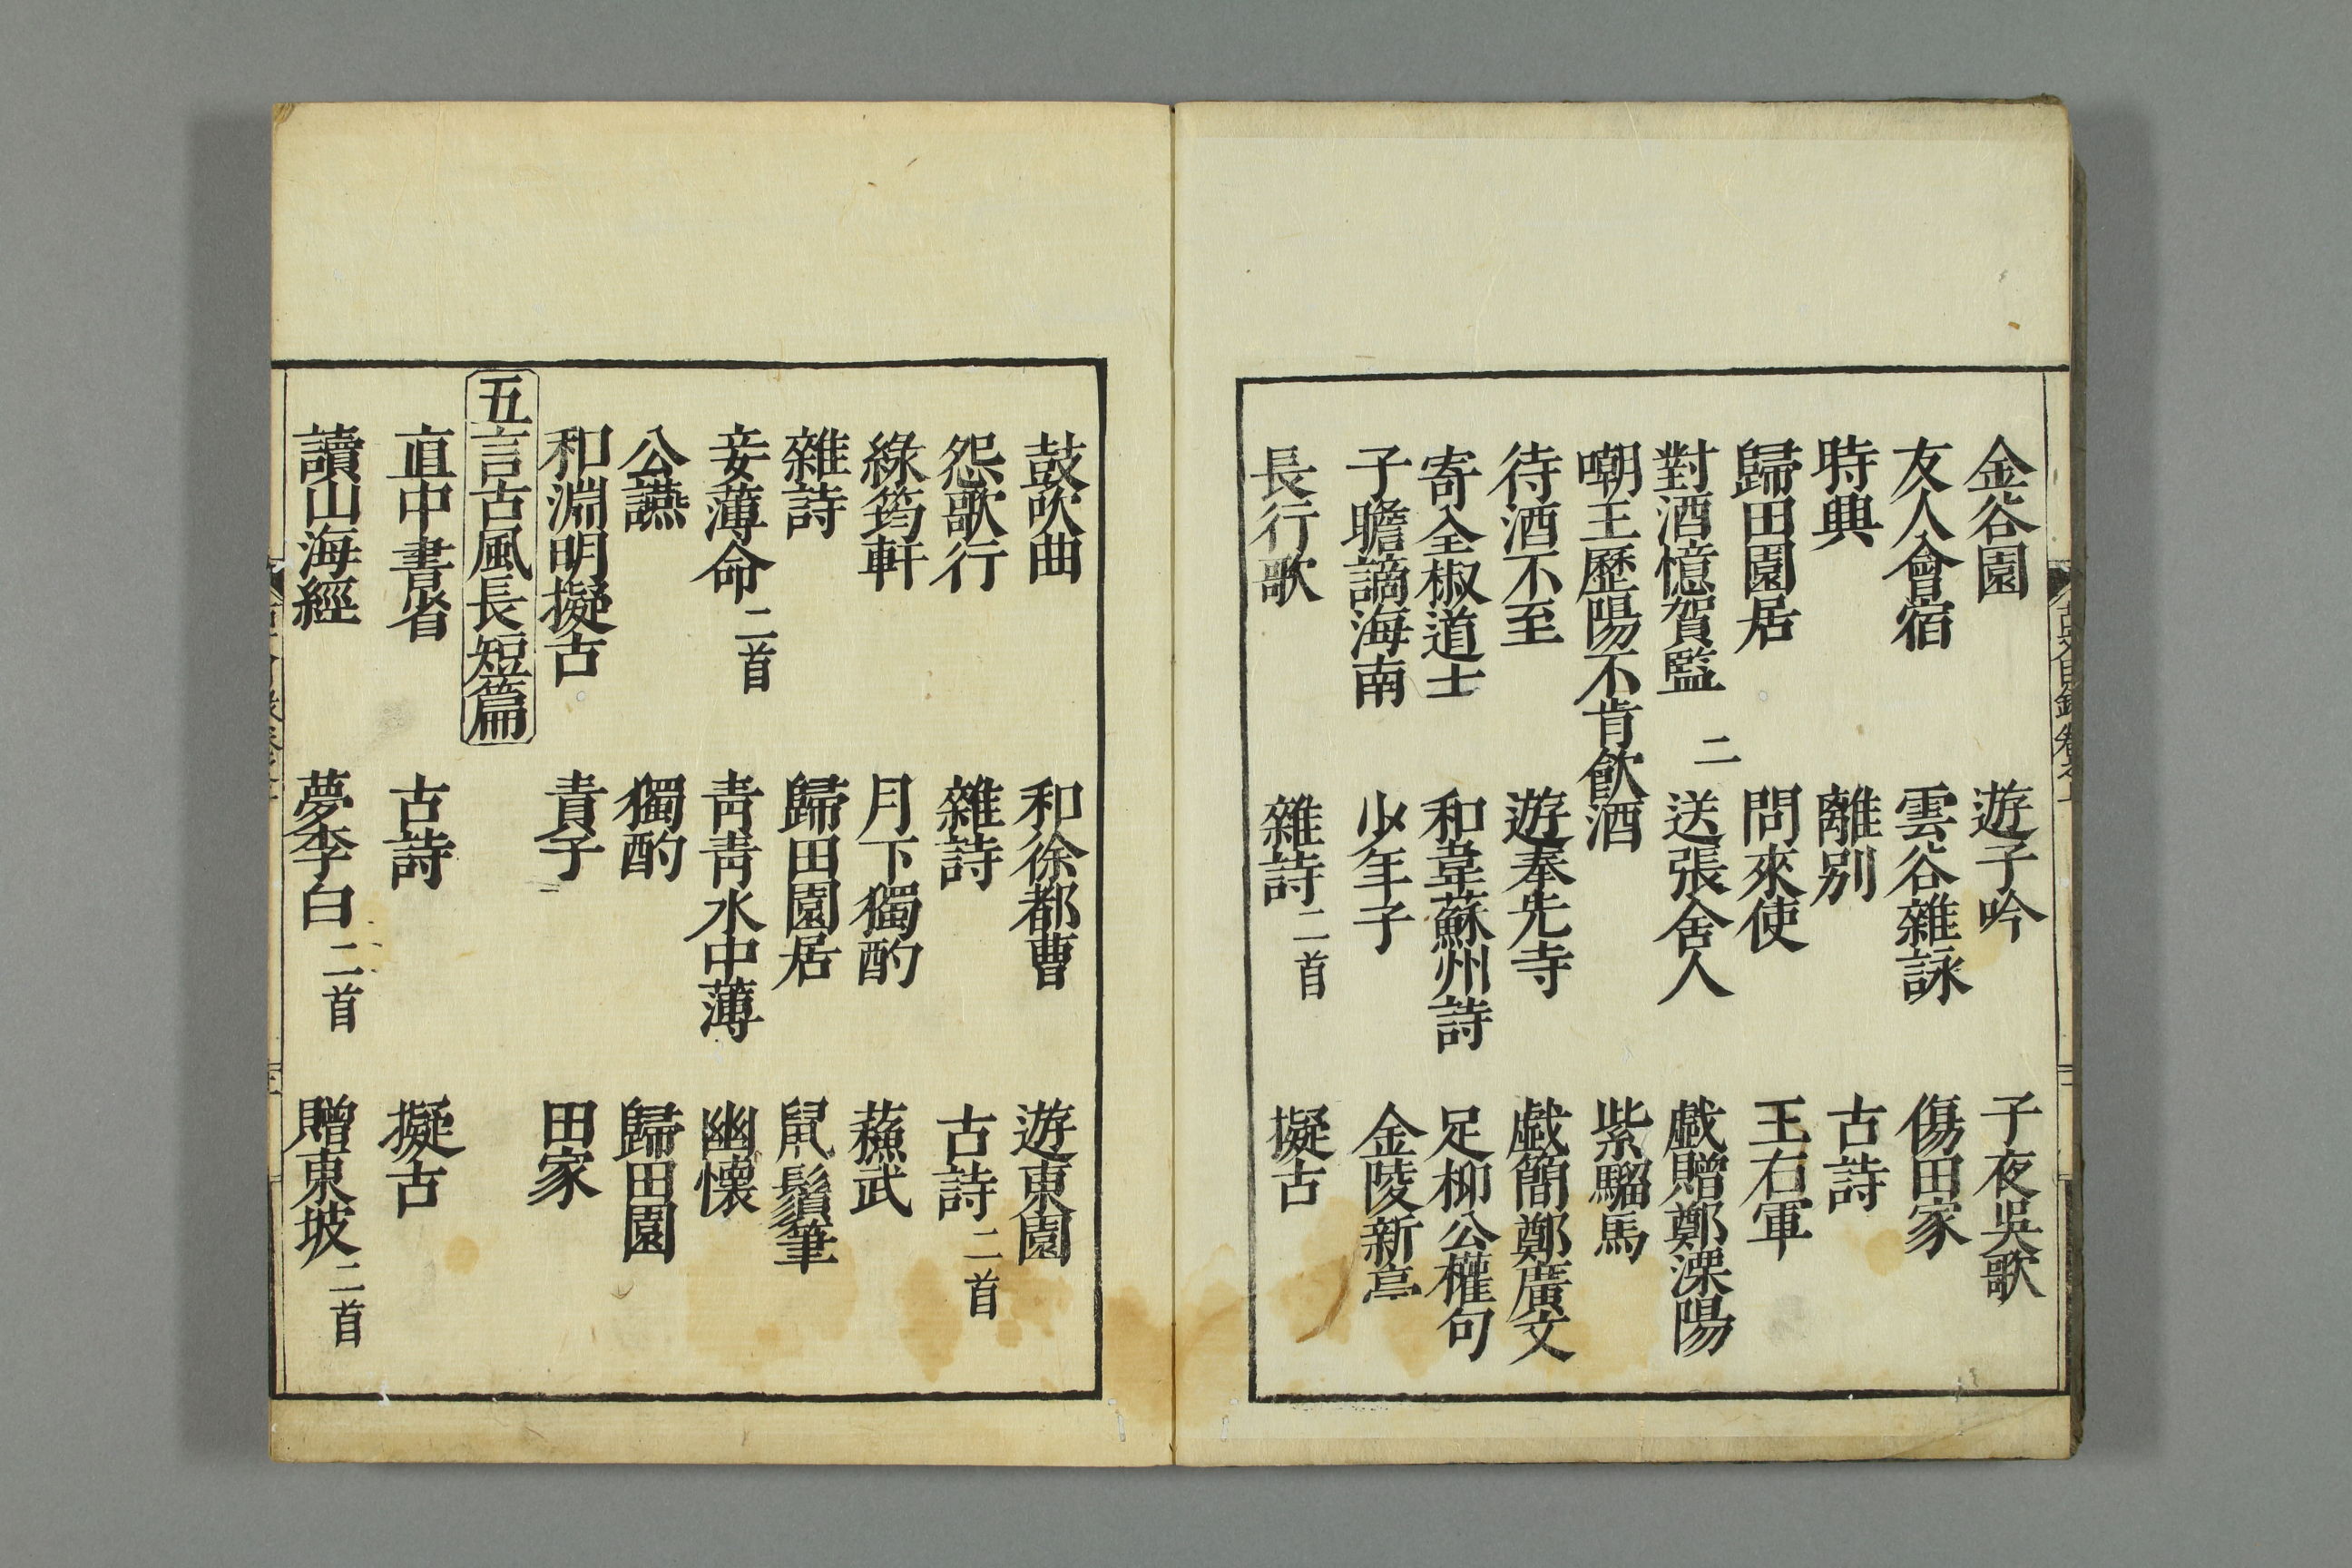 金谷園 遊子吟 子夜吳歌
友人會宿 雲谷雜詠 傷田家
時興 離別 古詩
歸田園居 問來使 王右軍
對酒憶賀監二 送張舍人 戲贈鄭溧陽
嘲王歷陽不肯飲酒 紫騮馬
待酒不至 遊奉先寺 戲簡鄭廣文
寄全椒道士 和韋蘇州詩 足柳公權句
子瞻謫海南 少年子 金陵新亭
長行歌 雜詩二首 擬古
鼓吹曲 和徐都曹 遊東園
怨歌行 雜詩 古詩二首
綠筠軒 月下獨酌 蘓武
雜詩 歸田園居 鼠鬚筆
妾薄命二首 青青水中薄 幽懷
公讌 獨酌 歸田園
和淵明擬古 責子 田家
五言古風長短篇
直中書省 古詩 擬古
讀山海經 夢李白二首 贈東坡二首